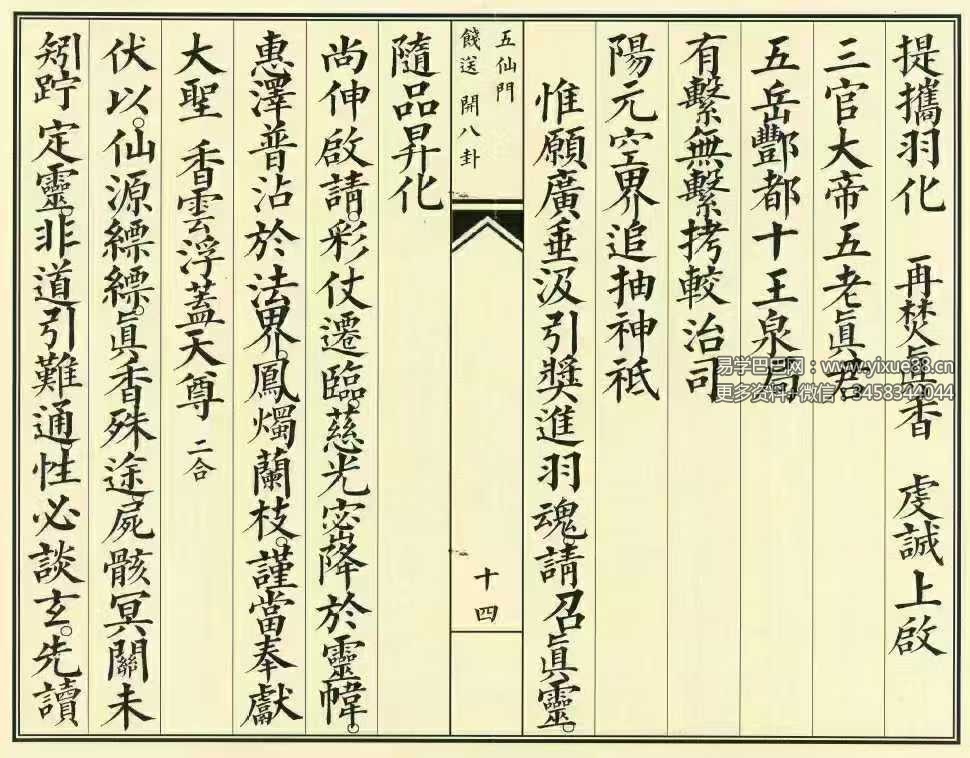 提攜羽化　再焚真香　虔誠上啟
三官大帝五老眞君
五岳酆都十王泉局
有繫無繫拷較治司
陽元空界追抽神祇
惟願廣垂汲引獎進羽魂。請召眞靈。
五仙門
餞送　開八卦
十四
隨品昇化
尚伸啟請。彩仗遷臨。慈光宓降於靈幃。
惠澤普沾於法界。鳳燭蘭枝。謹當奉獻
大聖　香雲浮蓋天尊　二合
伏以。仙源縹縹。眞香殊途。屍骸冥關未
定靈。非道引難通性必談玄。先讀
易学巴巴网：www.yixue88.cn
更多资料+微信：3458344044